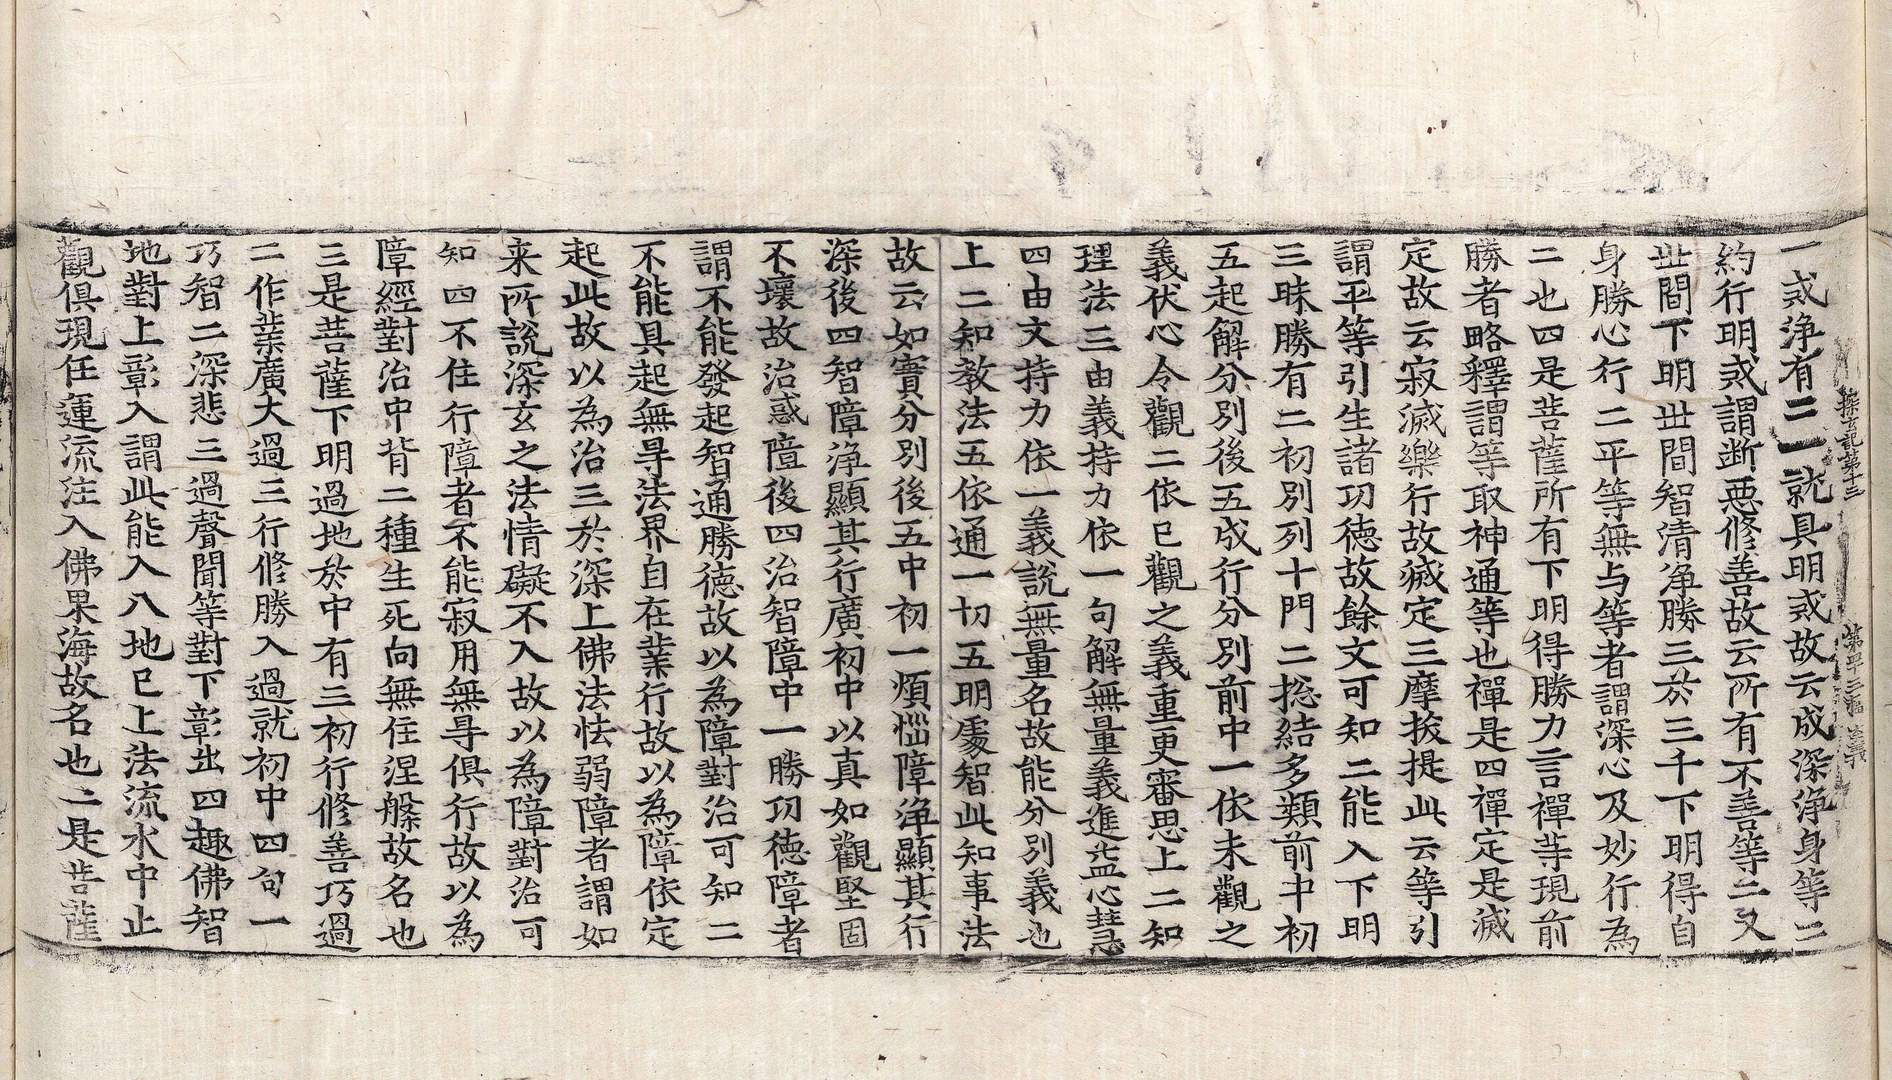 探玄記第十三　第四十三張　義
一戒淨有二一就具明戒故云成深淨身等二
約行明戒謂断惡修善故云所有不善等二又
世間下明世間智清淨勝三於三千下明得自
身勝心行二平等無与等者謂深心及妙行為
二也四是菩薩所有下明得勝力言禪等現前
勝者略釋謂等取神通等也禪是四禪定是滅
定故云寂滅樂行故滅定三摩捘提此云等引
謂平等引生諸功徳故餘文可知二能入下明
三昧勝有二初別列十門二捴結多類前中初
五起解分別後五成行分別前中一依未觀之
義伏心令觀二依已觀之義重更審思上二知
理法三由義持力依一句解無量義進益心慧
四由文持力依一義說無量名故能分別義也
上二知教法五依通一切五明處智此知事法
故云如實分別後五中初一煩惱障淨顯其行
深後四智障淨顯其行廣初中以真如觀堅固
不壞故治惑障後四治智障中一勝功徳障者
謂不能發起智通勝徳故以為障對治可知二
不能具起無导法界自在業行故以為障依定
起此故以為治三於深上佛法怯弱障者謂如
来所說深玄之法情礙不入故以為障對治可
知四不住行障者不能寂用無导俱行故以為
障經對治中背二種生死向無住涅槃故名也
三是菩薩下明過地於中有三初行修善巧過
二作業廣大過三行修勝入過就初中四句一
巧智二深悲三過聲聞等對下彰出四趣佛智
地對上彰入謂此能入八地已上法流水中止
觀俱現任運流注入佛果海故名也二是菩薩